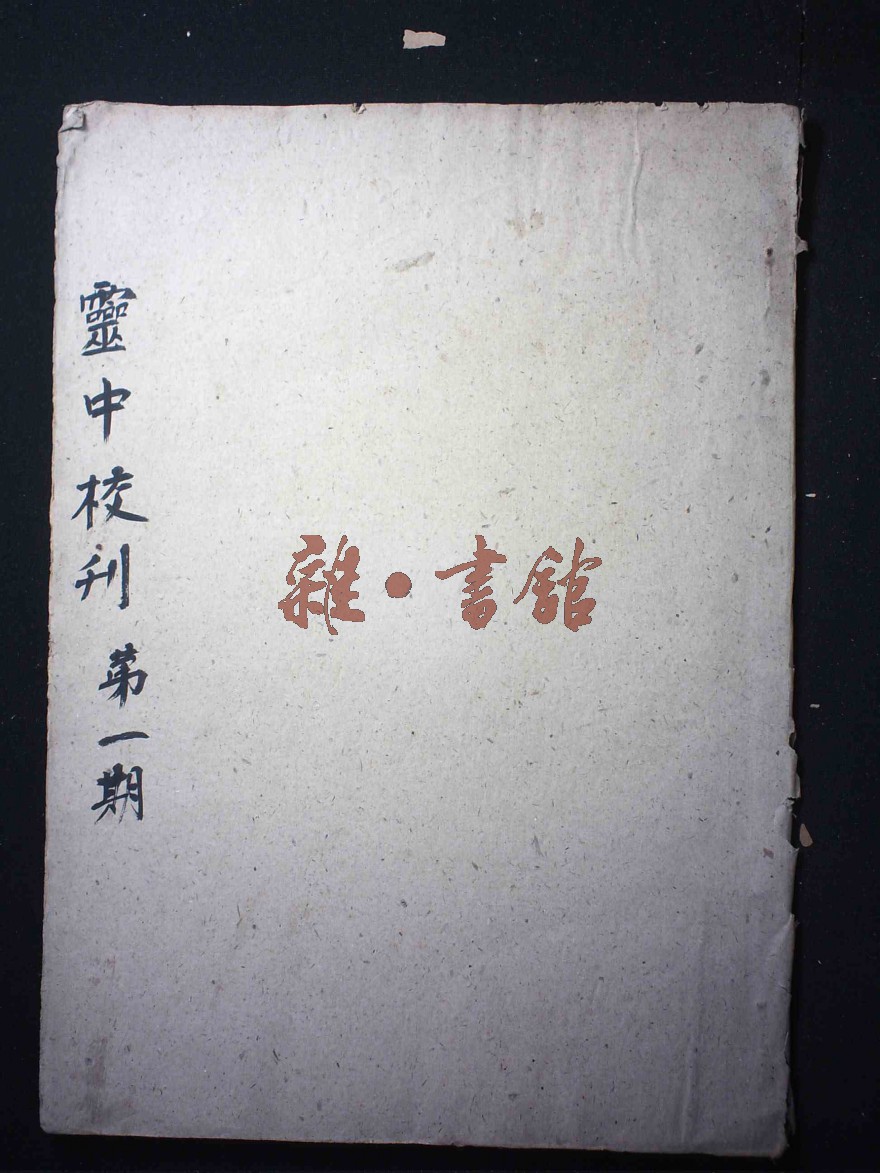 靈中校刊 第一期
雜·書館